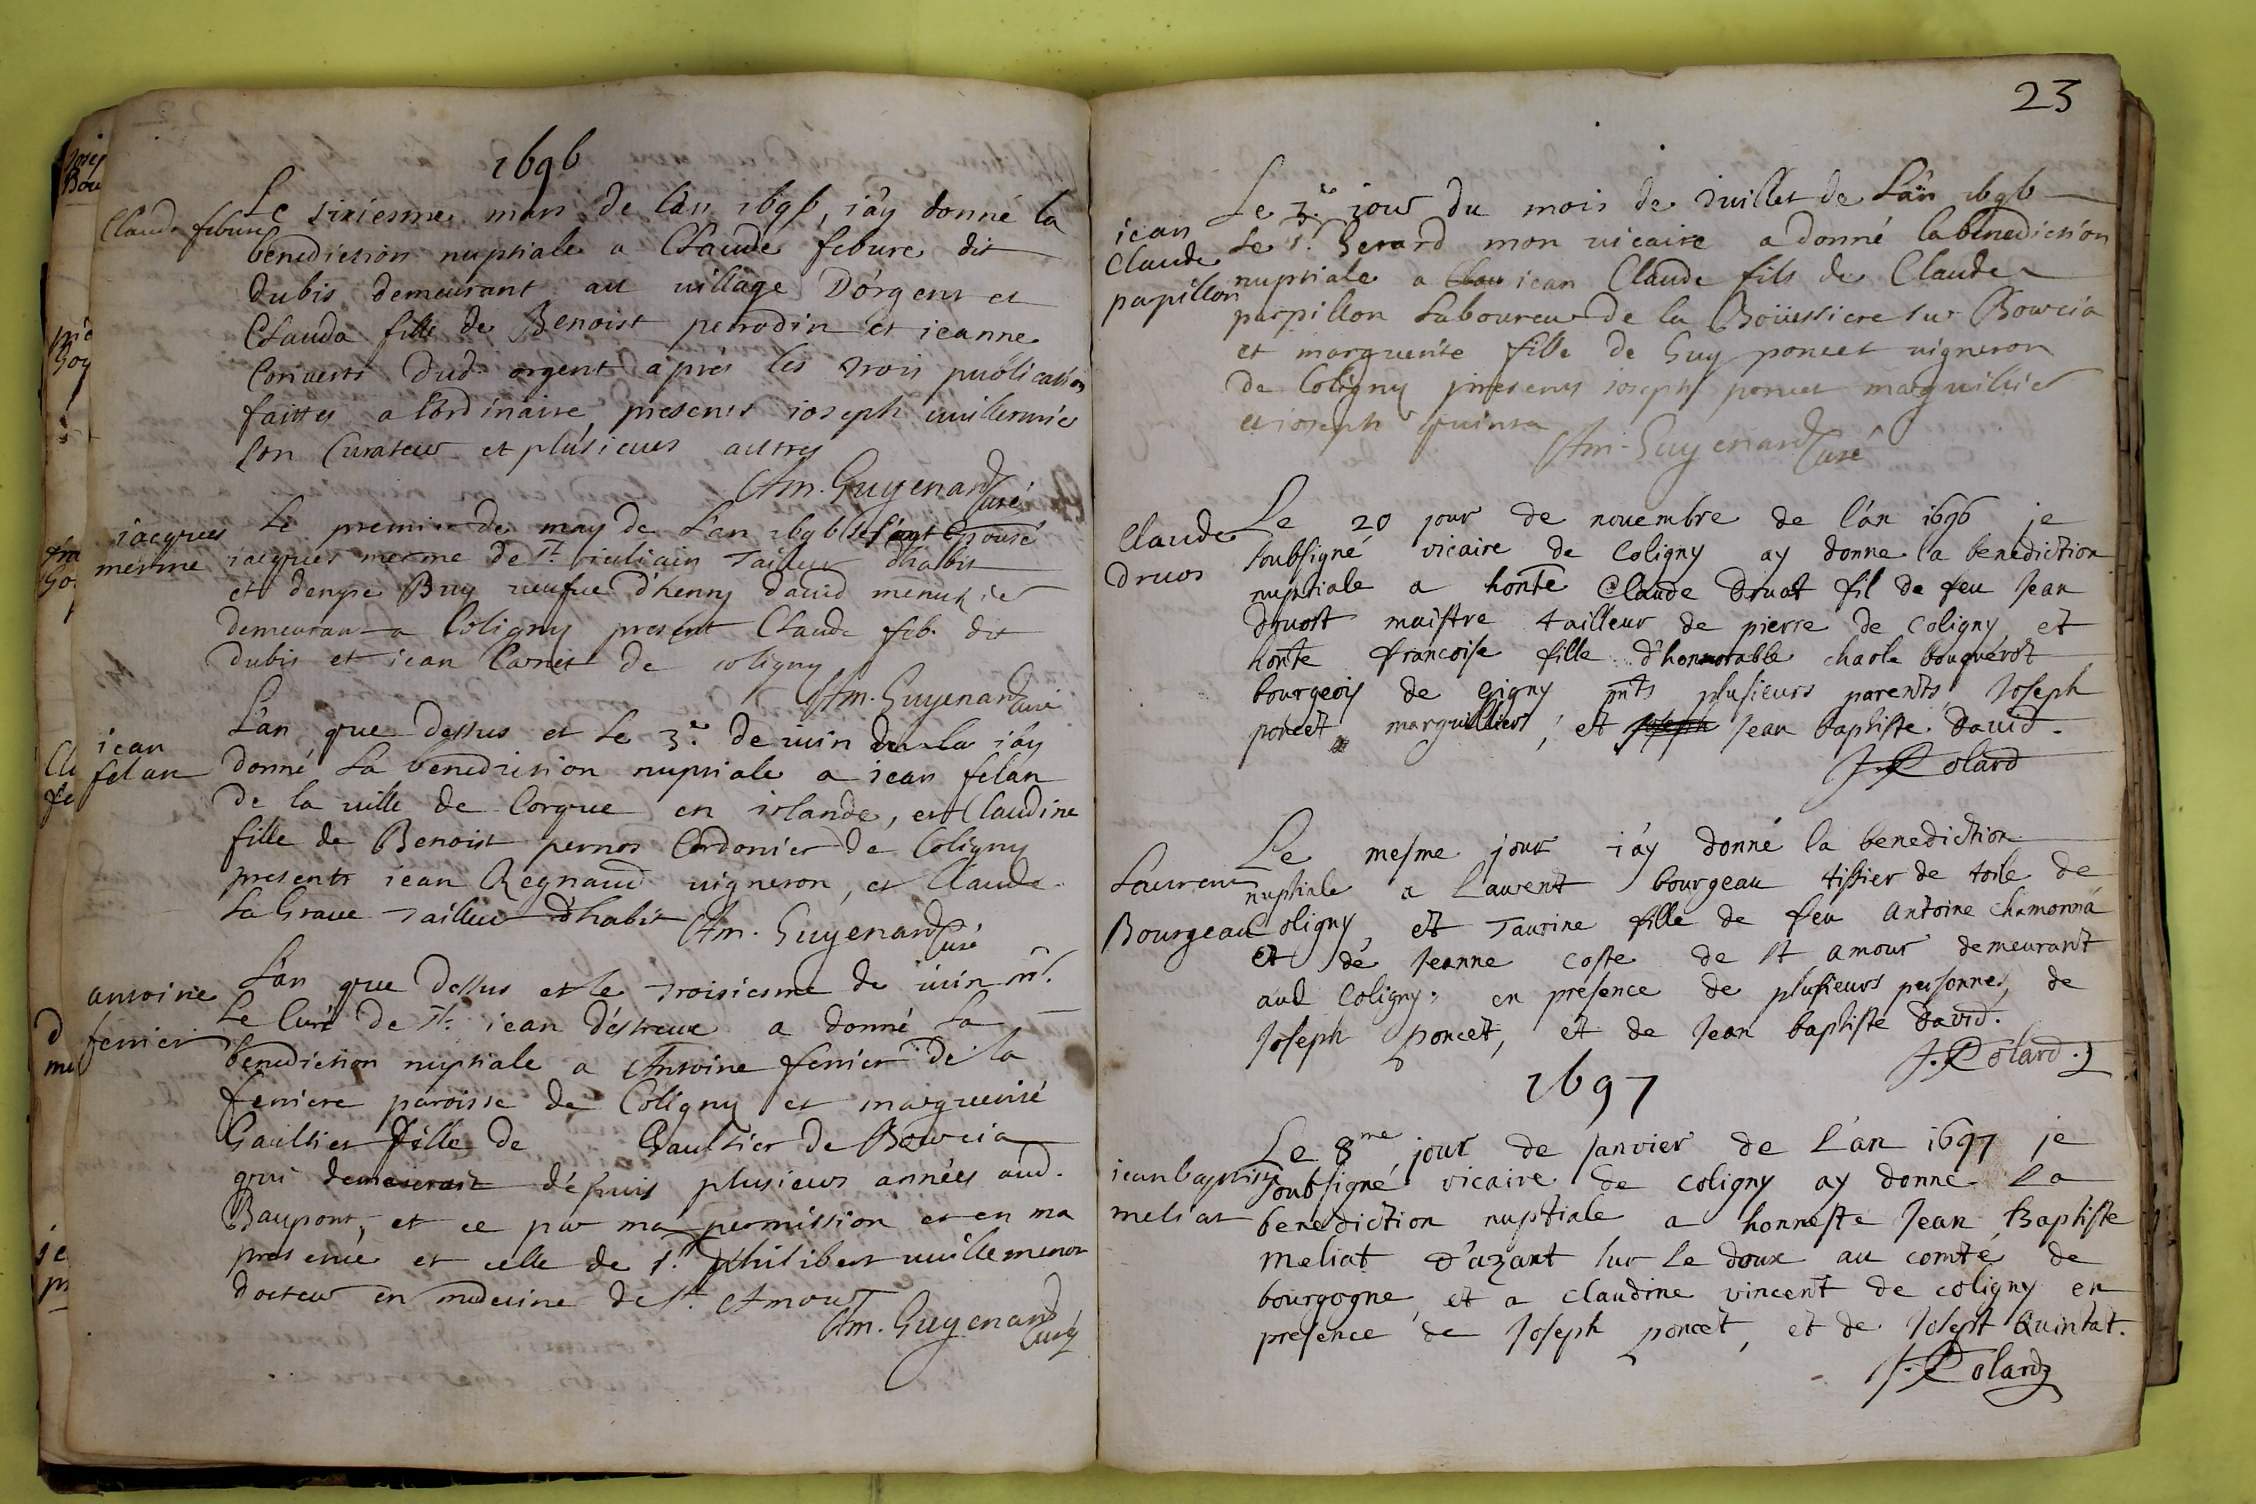 1696
Claude febure
Le sixiesme mars de l'an 1696, i'ay donné la
benediction nuptiale a Claude febure dit
dubis demeurant au village D'orgent et
Clauda fille de Benoist perrodin et ieanne
Convert dud. orgent aprés les trois publications
faittes a l'ordinaire, presents ioseph vuillermié
son Curateur et plusieurs autres
Am. Guyenard Curé
iacques
mesme
Le premier de may de L'an 1696
iacques mesme de St. iullain Tailleur d'habit
et denyse Buy veufue d'henry david menusier
demeurant a Coligny present Claude feb. dit
dubis et iean Carnet de coligny
Am. Guyenard curé
iean
felan
L'an que Dessus et le 3e. de iuin i'ay
donné La benediction nuptiale a iean felan
de la ville de Corque en irlande, et Claudine
fille de Benoist pernos Cordonier de Coligny
presents iean Regnaud vigneron, et Claude
La Graue Tailleur d'habit
Am. Guyenard Curé
antoine
ferrier
L'an que Dessus et le troisiesme de iuin mr.
Le Curé de St. iean d'éstreux a donné La
benediction nuptiale a Antoine ferrier de la
ferriere paroisse de Coligny et marguerite
Gaultier fille de Gaultier de Bourcia
qui demeurait dépuis plusieurs années aud.
Baupont, et ce par ma permission et en ma
presence et celle de Sr. philibert vuillemenot
docteur en medecine de St. Amour
Am. Guyenard curé
23
iean
Claude
papillon
Le 3e. iour du mois de Iuillet de L'an 1696
Le Sr. Gerard mon vicaire a donné la benediction
nuptiale a iean Claude fils de Claude
papillon Laboureur de la Boüissiere sur Bourcia
et marguerite fille de Guy poncet vigneron
de Coligny presents ioseph poncet marguillier
et ioseph quinta
Am. Guyenard Curé
Claude
druos
Le 20 jour de novembre de l'an 1696 je
soubsigné vicaire de Coligny ay donne la benediction
nuptiale a honte Claude Druot fil de feu Jean
druost maistre tailleur de pierre de Coligny et
honte francoise fille d'honnorable charle bouquerot
bourgeois de gigny pnts plusieurs parents, Joseph
poncet marguillier, et Joseph Jean baptiste David.
J. Rolard
Laurent
Bourgeau
Le mesme jour i'ay donné la benediction
nuptiale a Laurent bourgeau tissier de toile de
Coligny, et Taurine fille de feu Antoine chamonna
et dé Jeanne coste de st amour demeurant
aud Coligny, en présence de plusieurs personnes, de
Joseph poncet, et de Jean baptiste David.
J. Rolard.
1697
iean baptiste
meliat
Le 8me jour de Janvier de L'an 1697 je
soubsigné vicaire de coligny ay donne La
benediction nuptiale a honneste Jean Baptiste
meliat D'azant sur Le doux au comté de
bourgogne, et a claudine vincent de coligny en
presence de Joseph poncet, et de Joseph Quintat.
J. Rolard